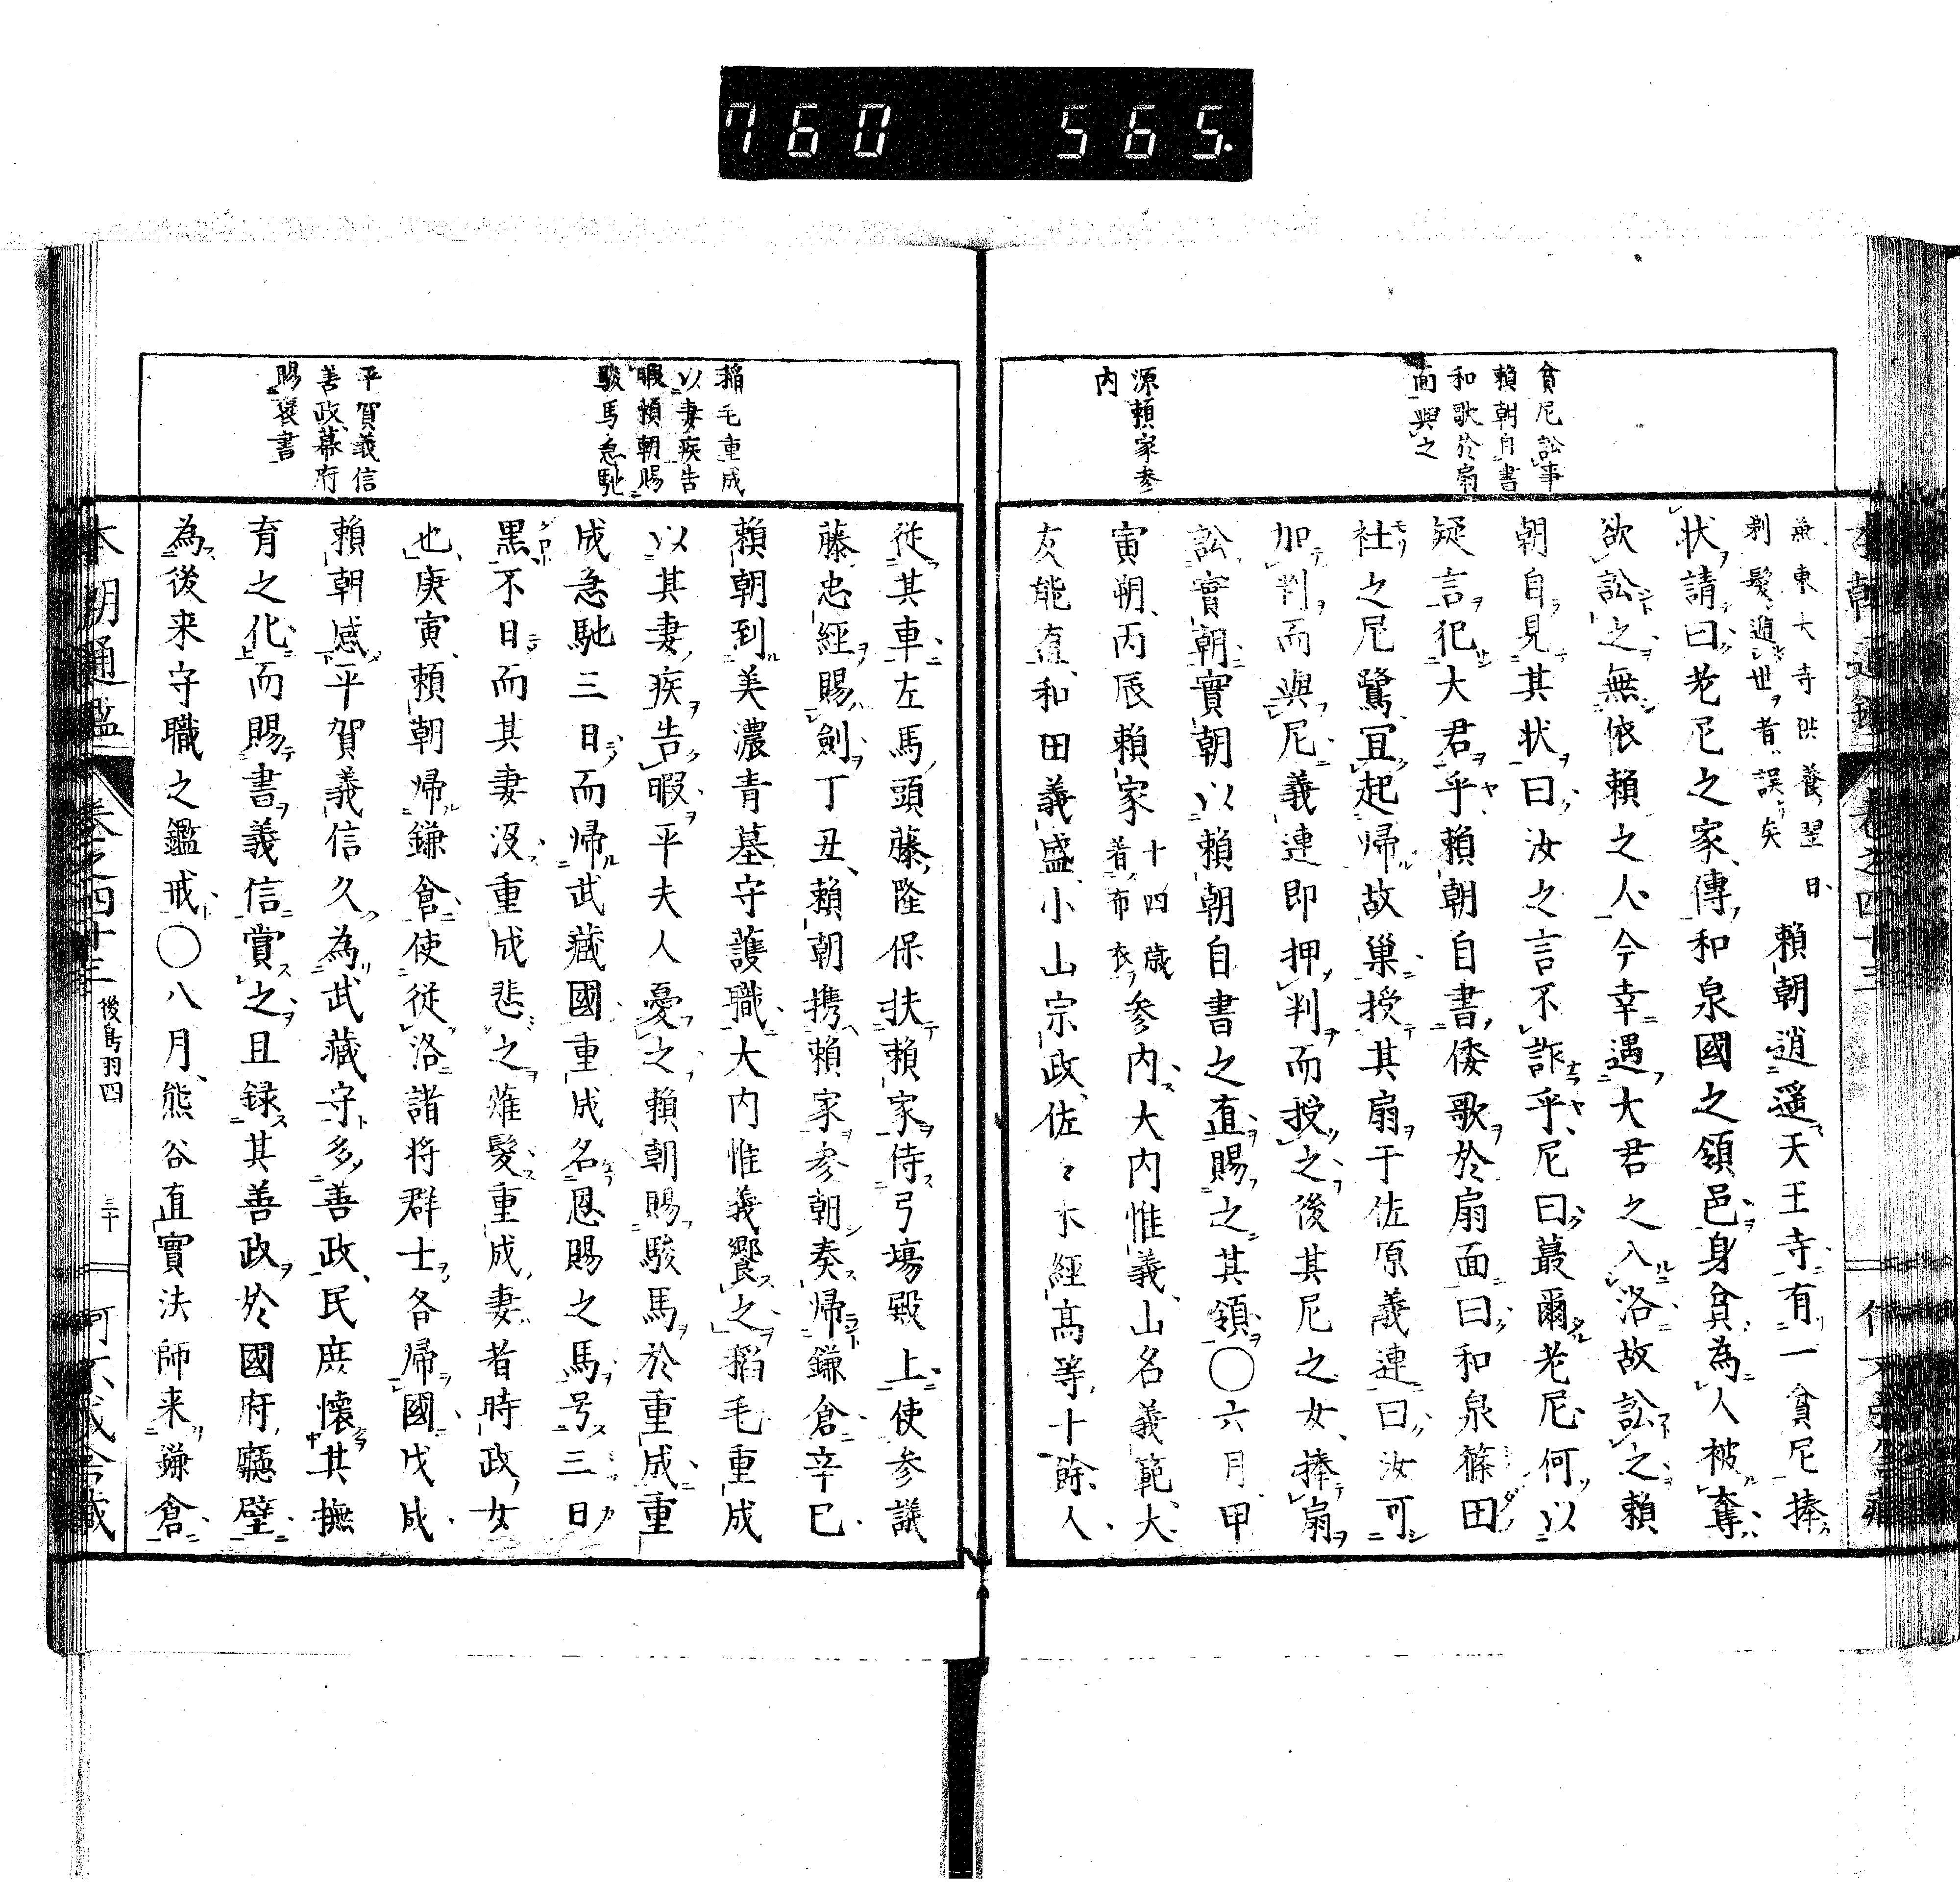 760 565.
貧尼訟事
賴朝自書
和歌於扇
面與之
源賴家参
内
無東大寺供養翌日
剃髮遁世者誤矣
賴朝逍遥天王寺有一貧尼捧
状請曰老尼之家傳和泉國之領邑身貧為人被奪
欲訟之無依賴之人今幸遇大君之入洛故訟之賴
朝自見其状曰汝之言不詐乎尼曰蕞爾老尼何以
疑言犯大君乎賴朝自書倭歌於扇面曰和泉篠田
社之尼鷺冝起帰故巢授其扇于佐原義連曰汝可
加判而與尼義連即押判而授之後其尼之女捧扇
訟實朝實朝以賴朝自書之直賜之其領〇六月甲
寅朔丙辰賴家十四歳
着布衣参内大内惟義山名義範大
友能直和田義盛小山宗政佐々木經髙等十餘人
稲毛重成
以妻疾告
暇賴朝賜
駿馬急馳
平賀義信
善政幕府
賜褒書
従其車左馬頭藤隆保扶賴家侍弓場殿上使参議
藤忠經賜劍丁丑賴朝携賴家参朝奏帰鎌倉辛巳
賴朝到美濃青墓守護職大内惟義饗之稲毛重成
以其妻疾告暇平夫人憂之賴朝賜駿馬於重成重
成急馳三日而帰武藏國重成名恩賜之馬号三日
黒不日而其妻没重成悲之薙髮重成妻者時政女
也庚寅賴朝帰鎌倉使従洛諸将群士各帰國戊戌
賴朝感平賀義信久為武藏守多善政民庶懐其撫
育之化而賜書義信賞之且録其善政於國府廳壁
為後来守職之鑑戒〇八月熊谷直實法師来鎌倉
本朝通鑑 卷之四十三 後鳥羽四 三十